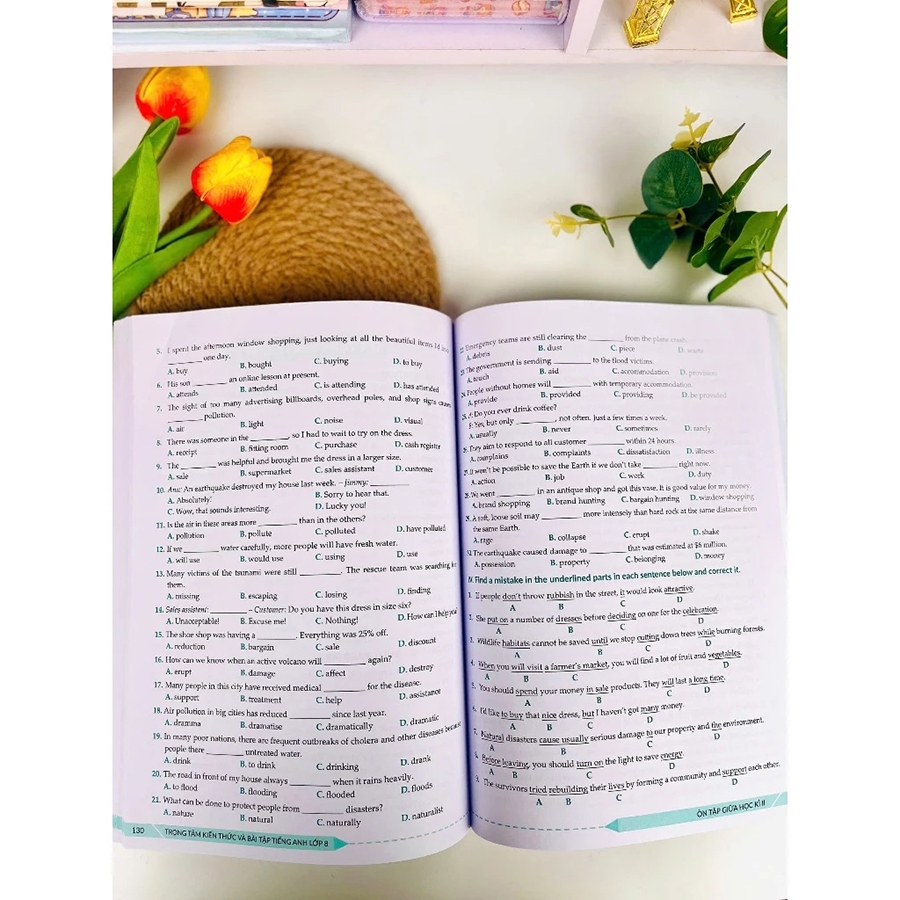 5. I spent the afternoon window shopping, just looking at all the beautiful items I'd love
________ one day.
A. buy B. bought C. buying D. to buy
6. His son ________ an online lesson at present.
A. attends B. attended C. is attending D. has attended
7. The sight of too many advertising billboards, overhead poles, and shop signs causes
________ pollution.
A. air B. light C. noise D. visual
8. There was someone in the ________, so I had to wait to try on the dress.
A. receipt B. fitting room C. purchase D. cash register
9. The ________ was helpful and brought me the dress in a larger size.
A. sale B. supermarket C. sales assistant D. customer
10. Ana: An earthquake destroyed my house last week. – Jimmy: ________
A. Absolutely! B. Sorry to hear that.
C. Wow, that sounds interesting. D. Lucky you!
11. Is the air in these areas more ________ than in the others?
A. pollution B. pollute C. polluted D. have polluted
12. If we ________ water carefully, more people will have fresh water.
A. will use B. would use C. using D. use
13. Many victims of the tsunami were still ________. The rescue team was searching for
them.
A. missing B. escaping C. losing D. finding
14. Sales assistant: ________ – Customer: Do you have this dress in size six?
A. Unacceptable! B. Excuse me! C. Nothing! D. How can I help you?
15. The shoe shop was having a ________. Everything was 25% off.
A. reduction B. bargain C. sale D. discount
16. How can we know when an active volcano will ________ again?
A. erupt B. damage C. affect D. destroy
17. Many people in this city have received medical ________ for the disease.
A. support B. treatment C. help D. assistance
18. Air pollution in big cities has reduced ________ since last year.
A. dramma B. dramatise C. dramatically D. dramatic
19. In many poor nations, there are frequent outbreaks of cholera and other diseases because
people there ________ untreated water.
A. drink B. to drink C. drinking D. drank
20. The road in front of my house always ________ when it rains heavily.
A. to flood B. flooding C. flooded D. floods
21. What can be done to protect people from ________ disasters?
A. nature B. natural C. naturally D. naturalist
130 TRỌNG TÂM KIẾN THỨC VÀ BÀI TẬP TIẾNG ANH LỚP 8
Emergency teams are still clearing the ________ from the plane crash.
A. debris B. dust C. piece D. waste
The government is sending ________ to the flood victims.
A. touch B. aid C. accommodation D. provision
People without homes will ________ with temporary accommodation.
A. provide B. provided C. providing D. be provided
A: Do you ever drink coffee?
B: Yes, but only ________, not often. Just a few times a week.
A. usually B. never C. sometimes D. rarely
They aim to respond to all customer ________ within 24 hours.
A. complains B. complaints C. dissatisfaction D. illness
It won't be possible to save the Earth if we don't take ________ right now.
A. action B. job C. work D. duty
We went ________ in an antique shop and got this vase. It is good value for my money.
A. brand shopping B. brand hunting C. bargain hunting D. window shopping
A soft, loose soil may ________ more intensely than hard rock at the same distance from
the same Earth.
A. rage B. collapse C. erupt D. shake
The earthquake caused damage to ________ that was estimated at $6 million.
A. possession B. property C. belonging D. money
IV. Find a mistake in the underlined parts in each sentence below and correct it.
1. If people don't throw rubbish in the street, it would look attractive.
A B C D
2. She put on a number of dresses before deciding on one for the celebration.
A B C D
3. Wildlife habitats cannot be saved until we stop cutting down trees while burning forests.
A B C D
4. When you will visit a farmer's market, you will find a lot of fruit and vegetables.
A B C D
5. You should spend your money in sale products. They will last a long time.
A B C D
6. I'd like to buy that nice dress, but I haven't got many money.
A B C D
7. Natural disasters cause usually serious damage to our property and the environment.
A B C D
8. Before leaving, you should turn on the light to save energy.
A B C D
9. The survivors tried rebuilding their lives by forming a community and support each other.
A B C D
ÔN TẬP GIỮA HỌC KÌ II